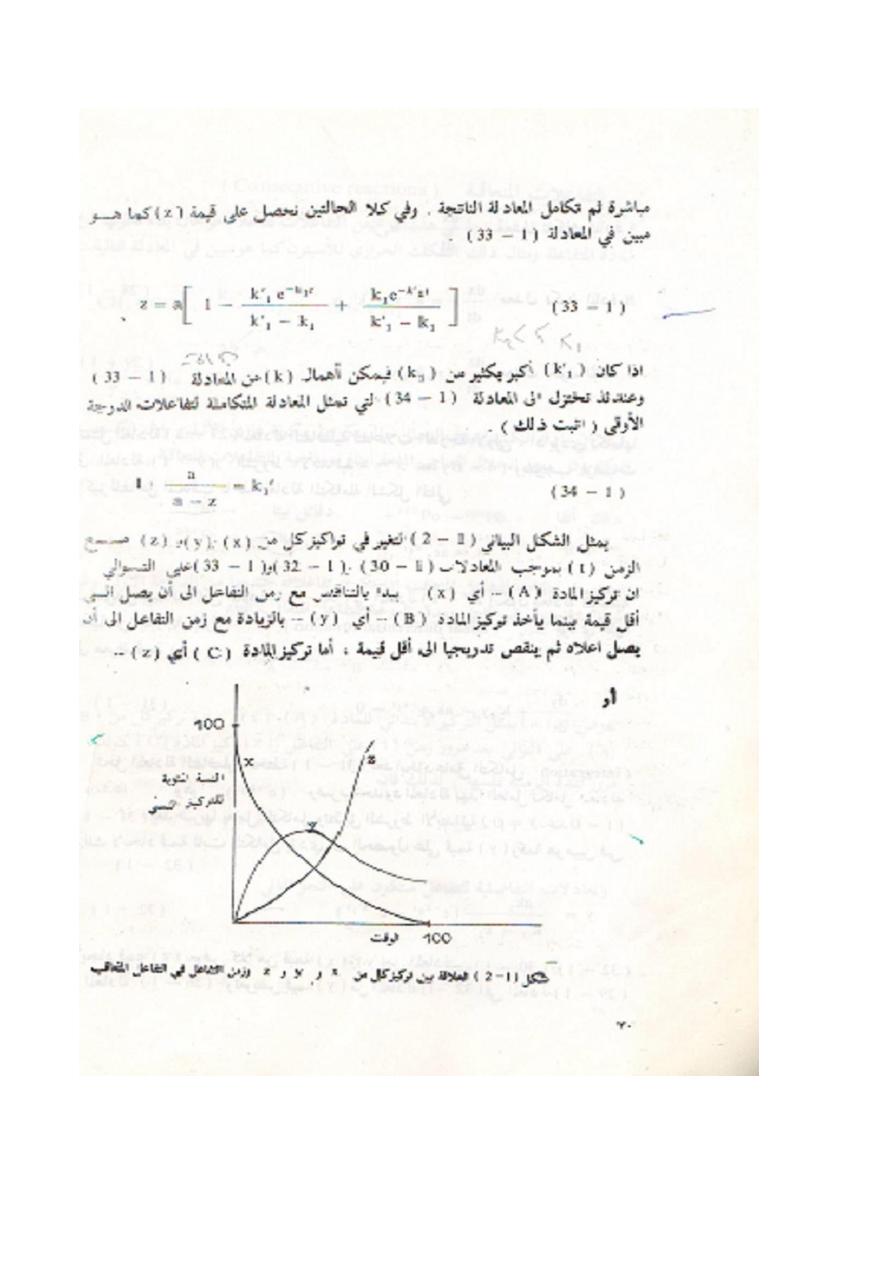 مباشرة ثم تكامل المعادلة الناتجة . وفي كلا الحالتين نحصل على قيمة (z) كما هـو
مبين في المعادلة (1 – 33) .
z = a[ 1 − k'₁ e^(−k₁t) / (k'₁ − k₁) + k₁e^(−k'₁t) / (k'₁ − k₁) ] (33 – 1)
اذا كان (k'₁) أكبر بكثير من (k₁) فيمكن اهمال (k) من المعادلة (1 – 33)
وعندئذ تختزل الى المعادلة (1 – 34) التي تمثل المعادلة المتكاملة لتفاعلات الدرجة
الأولى ( اثبت ذلك ) .
a / (a − z) = k₁t (34 – 1)
يمثل الشكل البياني (1 – 2) التغير في تراكيز كل من (x) و(y) و (z) مـــع
الزمن (t) بموجب المعادلات (1 – 30) ،(1 – 32) و(1 – 33) على التـوالي
ان تركيز المادة (A) – أي (x) يبدء بالتناقص مع زمن التفاعل الى أن يصل الـى
أقل قيمة بينما يأخذ تركيز المادة (B) – أي (y) – بالزيادة مع زمن التفاعل الى أن
يصل اعلاه ثم ينقص تدريجيا الى أقل قيمة ، أما تركيز المادة (C) أي (z) –
أو
100
x
z
النسبة المئوية
للتركيز
y
الوقت 100
شكل (1–2) العلاقة بين تركيز كل من x و y و z وزمن التفاعل في التفاعل المتعاقب
٢٠